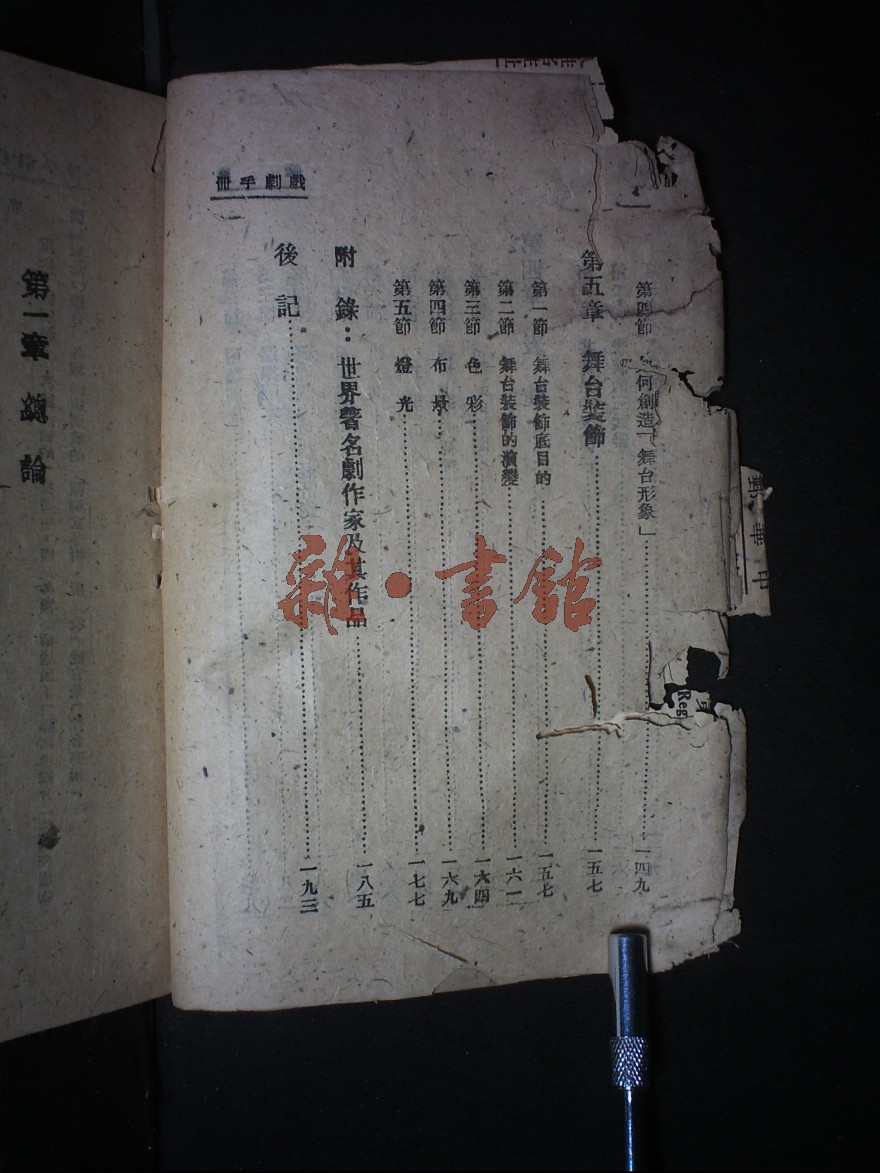 戲劇手冊
第四節 何創造「舞台形象」……一四九
第五章 舞台裝飾……一五七
第一節 舞台裝飾底目的……一五七
第二節 舞台裝飾的演變……一六一
第三節 色彩……一六四
第四節 布景……一六九
第五節 燈光……一七七
附錄：世界著名劇作家及其作品……一八五
後記……一九三
第一章 總論
雜·書館
Reg